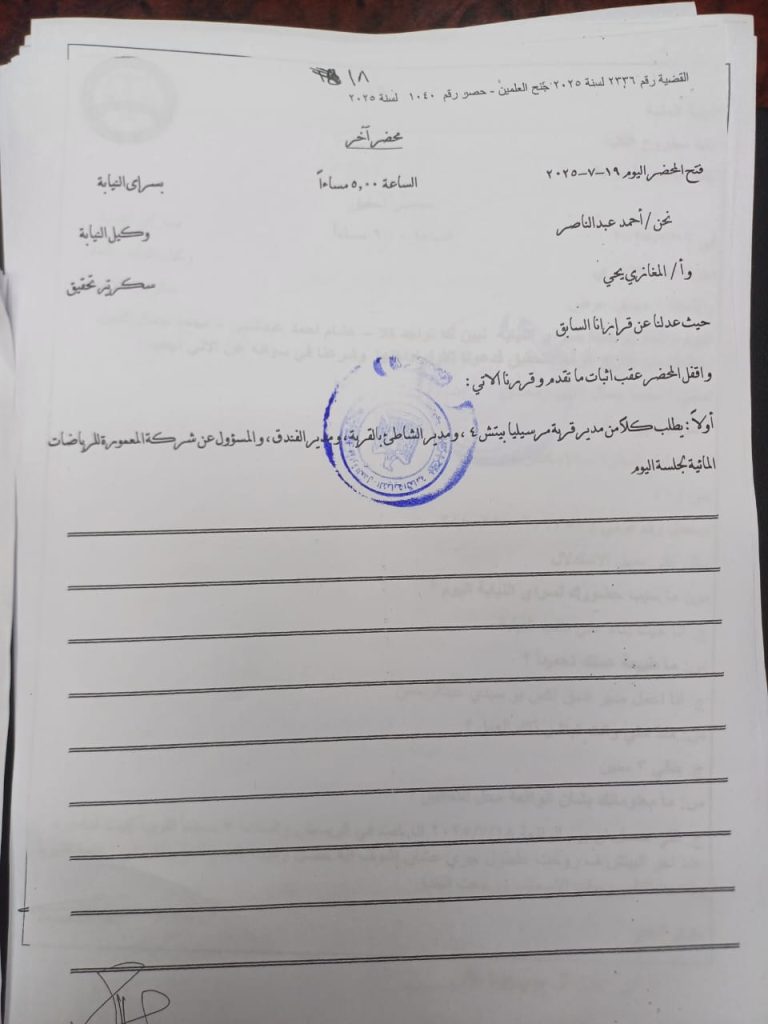 القضية رقم ٢٣٣٦ لسنة ٢٠٢٥ جنح العلمين - حصر رقم ١٠٤٠ لسنة ٢٠٢٥
١٨
محضر آخر
فتح المحضر اليوم ١٩-٧-٢٠٢٥ الساعة ٥,٠٠ مساءاً بسراى النيابة
نحن / أحمد عبدالناصر وكيل النيابة
وأ / المغازي يحي سكرتير تحقيق
حيث عدلنا عن قرارانا السابق
واقفل المحضر عقب اثبات ما تقدم وقررنا الاتي :
أولاً : يطلب كلاً من مدير قرية مرسيليا بيتش ٤ ، ومدير الشاطئ بالقرية ، ومدير الفندق ، والمسؤول عن شركة المعمورة للرياضات
المائية بجلسة اليوم